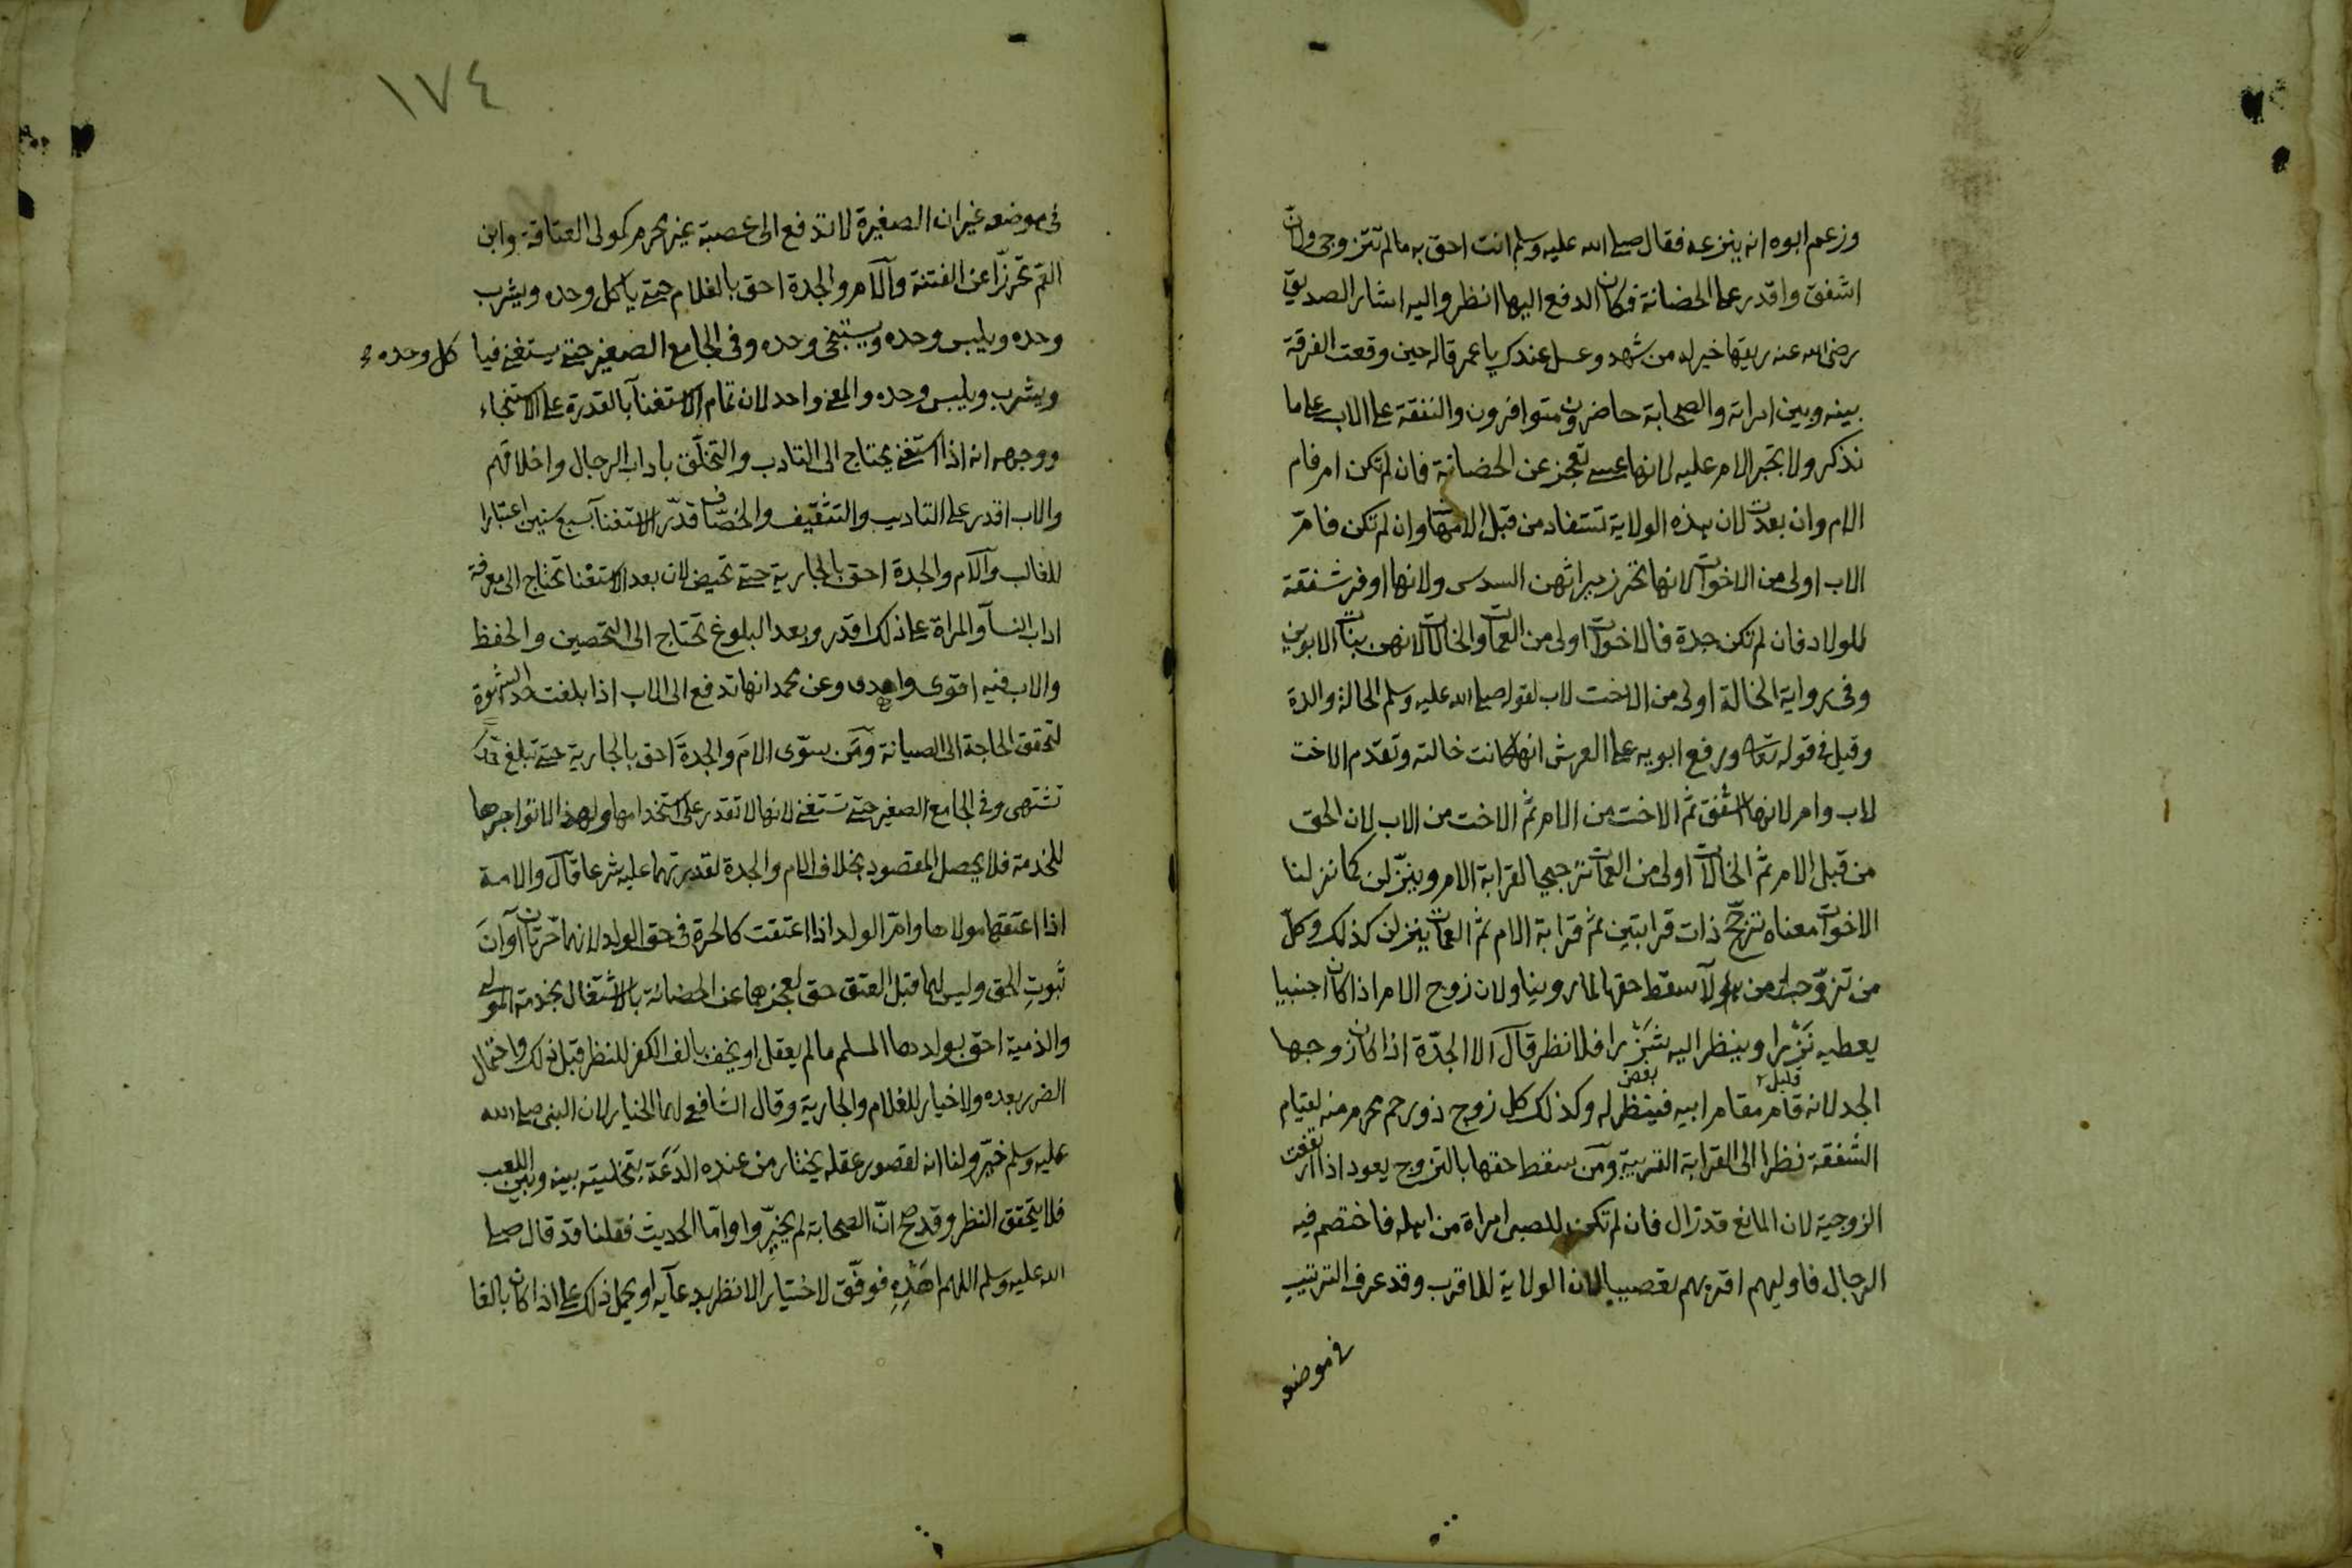 وزعم ابوه انه ينزعه فقال صلى الله عليه وسلم انت احق به مالم تتزوجى ولان
اشفق واقدر على الحضانة فكان الدفع اليها انظر واليه اشار الصديق
رضى الله عنه ريقها خير له من شهد وعسل عندك يا عمر قاله حين وقعت الفرقة
بينه وبين امراته والصحابة حاضرون متوافرون والنفقة على الاب على ما
نذكر ولا تجبر الام عليه لانها عسى تعجز عن الحضانة فان لم تكن ام فام
الام وان بعدت لان هذه الولاية تستفاد من قبل الامهات وان لم تكن فام
الاب اولى من الاخوات لانها تحرز ميراثهن السدس ولانها اوفر شفقة
للولاد فان لم تكن جدة فالاخوات اولى من العمات والخالات لانهن بنات الابوين
وفى رواية الخالة اولى من الاخت لاب لقوله صلى الله عليه وسلم الخالة والدة
وقيل فى قوله تعالى ورفع ابويه على العرش انها كانت خالته وتقدم الاخت
لاب وام لانها اشفق ثم الاخت من الام ثم الاخت من الاب لان الحق
من قبل الام ثم الخالات اولى من العمات ترجيحا لقرابة الام وينزلن كما نزلنا
الاخوات معناه ترجح ذات قرابتين ثم قرابة الام ثم العمات ينزلن كذلك وكل
من تزوجت من هولآ سقط حقها لما روينا ولان زوج الام اذا كان اجنبيا
يعطيه نزرا وينظر اليه شزرا فلا نظر قال الا الجدة اذا كان زوجها
قليل بغض
الجد لانه قام مقام ابيه فينظر له وكذلك كل زوج ذو رحم محرم منه لقيام
الشفقة نظرا الى القرابة القريبة ومن سقط حقها بالتزوج يعود اذا ارتفعت
الزوجية لان المانع قد زال فان لم تكن للصبى امراة من اهله فاختصم فيه
الرجال فاوليهم اقربهم تعصيبا لان الولاية للاقرب وقد عرف الترتيب
فى موضعه
١٧٤
فى موضعه غير ان الصغيرة لا تدفع الى عصبة غير محرم كمولى العتاقة وابن
العم تحرزا عن الفتنة والام والجدة احق بالغلام حتى ياكل وحده ويشرب
وحده ويلبس وحده ويستنجى وحده وفى الجامع الصغير حتى يستغنى فيا كل وحده
ويشرب ويلبس وحده والمعنى واحد لان تمام الاستغنآ بالقدرة على الاستنجاء
ووجهه انه اذا استغنى يحتاج الى التادب والتخلق باداب الرجال واخلاقهم
والاب اقدر على التاديب والتثقيف والخصاف قدر الاستغنآ بسبع سنين اعتبارا
للغالب والام والجدة احق بالجارية حتى تحيض لان بعد الاستغنا تحتاج الى معرفة
اداب النسآ والمراة على ذلك اقدر وبعد البلوغ تحتاج الى التحصين والحفظ
والاب فيه اقوى واهدى وعن محمد انها تدفع الى الاب اذا بلغت حد الشهوة
لتحقق الحاجة الى الصيانة ومن سوى الام والجدة احق بالجارية حتى تبلغ حدا
تشتهى وفى الجامع الصغير حتى تستغنى لانها لا تقدر على استخدامها ولهذا لا تواجرها
للخدمة فلا يحصل المقصود بخلاف الام والجدة لقدرتهما عليه شرعا قال والامة
اذا اعتقها مولاها وام الولد اذا اعتقت كالحرة فى حق الولد لانهما حرتان اوان
ثبوت الحق وليس لهما قبل العتق حق لعجزهما عن الحضانة بالاشتغال بخدمة المولى
والذمية احق بولدها المسلم مالم يعقل او يخف يالف الكفر للنظر قبل ذلك واحتمال
الضرر بعده ولا خيار للغلام والجارية وقال الشافعى لهما الخيار لان النبى صلى الله
عليه وسلم خير ولنا انه لقصور عقله يختار من عنده الدعة بتخليته بينه وبين اللعب
فلا يتحقق النظر وقد صح ان الصحابة لم يخيروا واما الحديث فقلنا قد قال صلى
الله عليه وسلم اللهم اهده فوفق لاختيار الانظر بدعآيه او يحمل ذلك على اذا كان بالغا